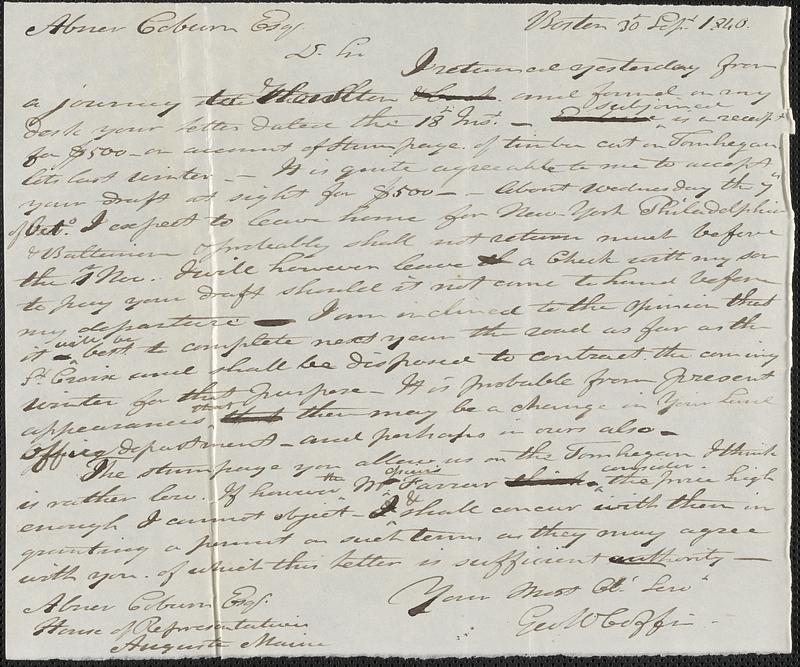 Abner Coburn Esq.
Boston 30 Sepr. 1840.
D. Sir
I returned yesterday from
a journey to Houlton and found on my
desk your letter dated the 18th Inst. — subjoined is a receipt
for $500 on account of stumpage of timber cut on Tomhegan
lots last winter. — It is quite agreeable to me to accept
your draft at sight for $500 — — About Wednesday the 7th
of Octo. I expect to leave home for New York Philadelphia
& Baltimore & probably shall not return much before
the 1st Nov. I will however leave a check with my son
to pay your draft should it not come to hand before
my departure — I am inclined to the opinion that
it will be best to complete next year the road as far as the
St Croix and shall be disposed to contract the coming
winter for that purpose — It is probable from present
appearances that there may be a change in your Land
Office department — and perhaps in ours also —
The stumpage you allow us on the Tomhegan I think
is rather low. If however the Mr Farrar consider the price high
enough I cannot object — & I shall concur with them in
granting a permit on such terms as they may agree
with you. of which this letter is sufficient authority —
Your Most Ob. Serv
Geo W Coffin
Abner Coburn Esq.
House of Representatives
Augusta Maine